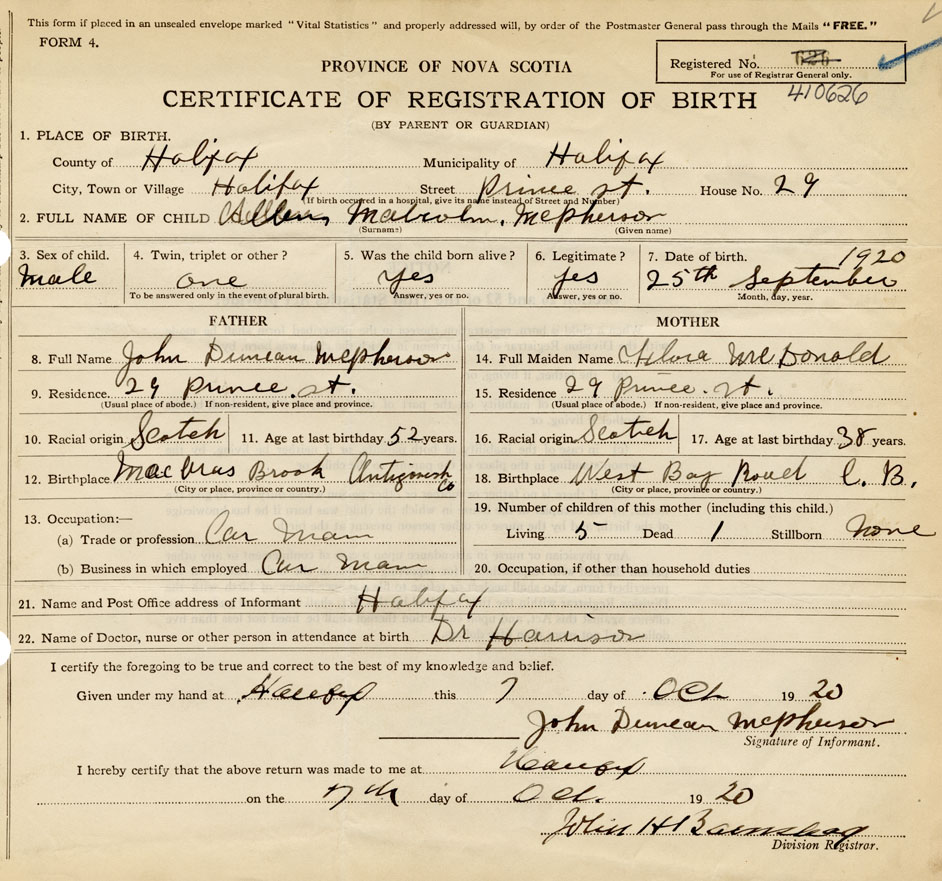 This form if placed in an unsealed envelope marked "Vital Statistics" and properly addressed will, by order of the Postmaster General pass through the Mails "FREE."
FORM 4.
Registered No. 626
For use of Registrar General only.
410626
PROVINCE OF NOVA SCOTIA
CERTIFICATE OF REGISTRATION OF BIRTH
(BY PARENT OR GUARDIAN)
1. PLACE OF BIRTH.
County of Halifax Municipality of Halifax
City, Town or Village Halifax Street Prince st. House No. 29
(If birth occurred in a hospital, give its name instead of Street and Number)
2. FULL NAME OF CHILD Malcolm, Mcpherson
(Surname) (Given name)
3. Sex of child. 4. Twin, triplet or other? 5. Was the child born alive? 6. Legitimate? 7. Date of birth. 1920
Male one Yes yes 25th September
To be answered only in the event of plural birth. Answer, yes or no. Answer, yes or no. Month, day, year.
FATHER MOTHER
8. Full Name John Duncan Mcpherson 14. Full Maiden Name McDonald
9. Residence. 29 Prince. st. 15. Residence 29 Prince. st.
(Usual place of abode.) If non-resident, give place and province. (Usual place of abode.) If non-resident, give place and province.
10. Racial origin Scotch 11. Age at last birthday 52 years. 16. Racial origin Scotch 17. Age at last birthday 38 years.
12. Birthplace Brook Antigonish Co 18. Birthplace West Bay Road C. B.
(City or place, province or country.) (City or place, province or country.)
13. Occupation:— 19. Number of children of this mother (including this child.)
(a) Trade or profession Car Mann Living 5 Dead 1 Stillborn None
(b) Business in which employed Car Mann 20. Occupation, if other than household duties
21. Name and Post Office address of Informant Halifax
22. Name of Doctor, nurse or other person in attendance at birth Dr Harrison
I certify the foregoing to be true and correct to the best of my knowledge and belief.
Given under my hand at Halifax this 7 day of Oct 1920
John Duncan Mcpherson
Signature of Informant.
I hereby certify that the above return was made to me at Halifax
on the 7th day of Oct. 1920
John H
Division Registrar.